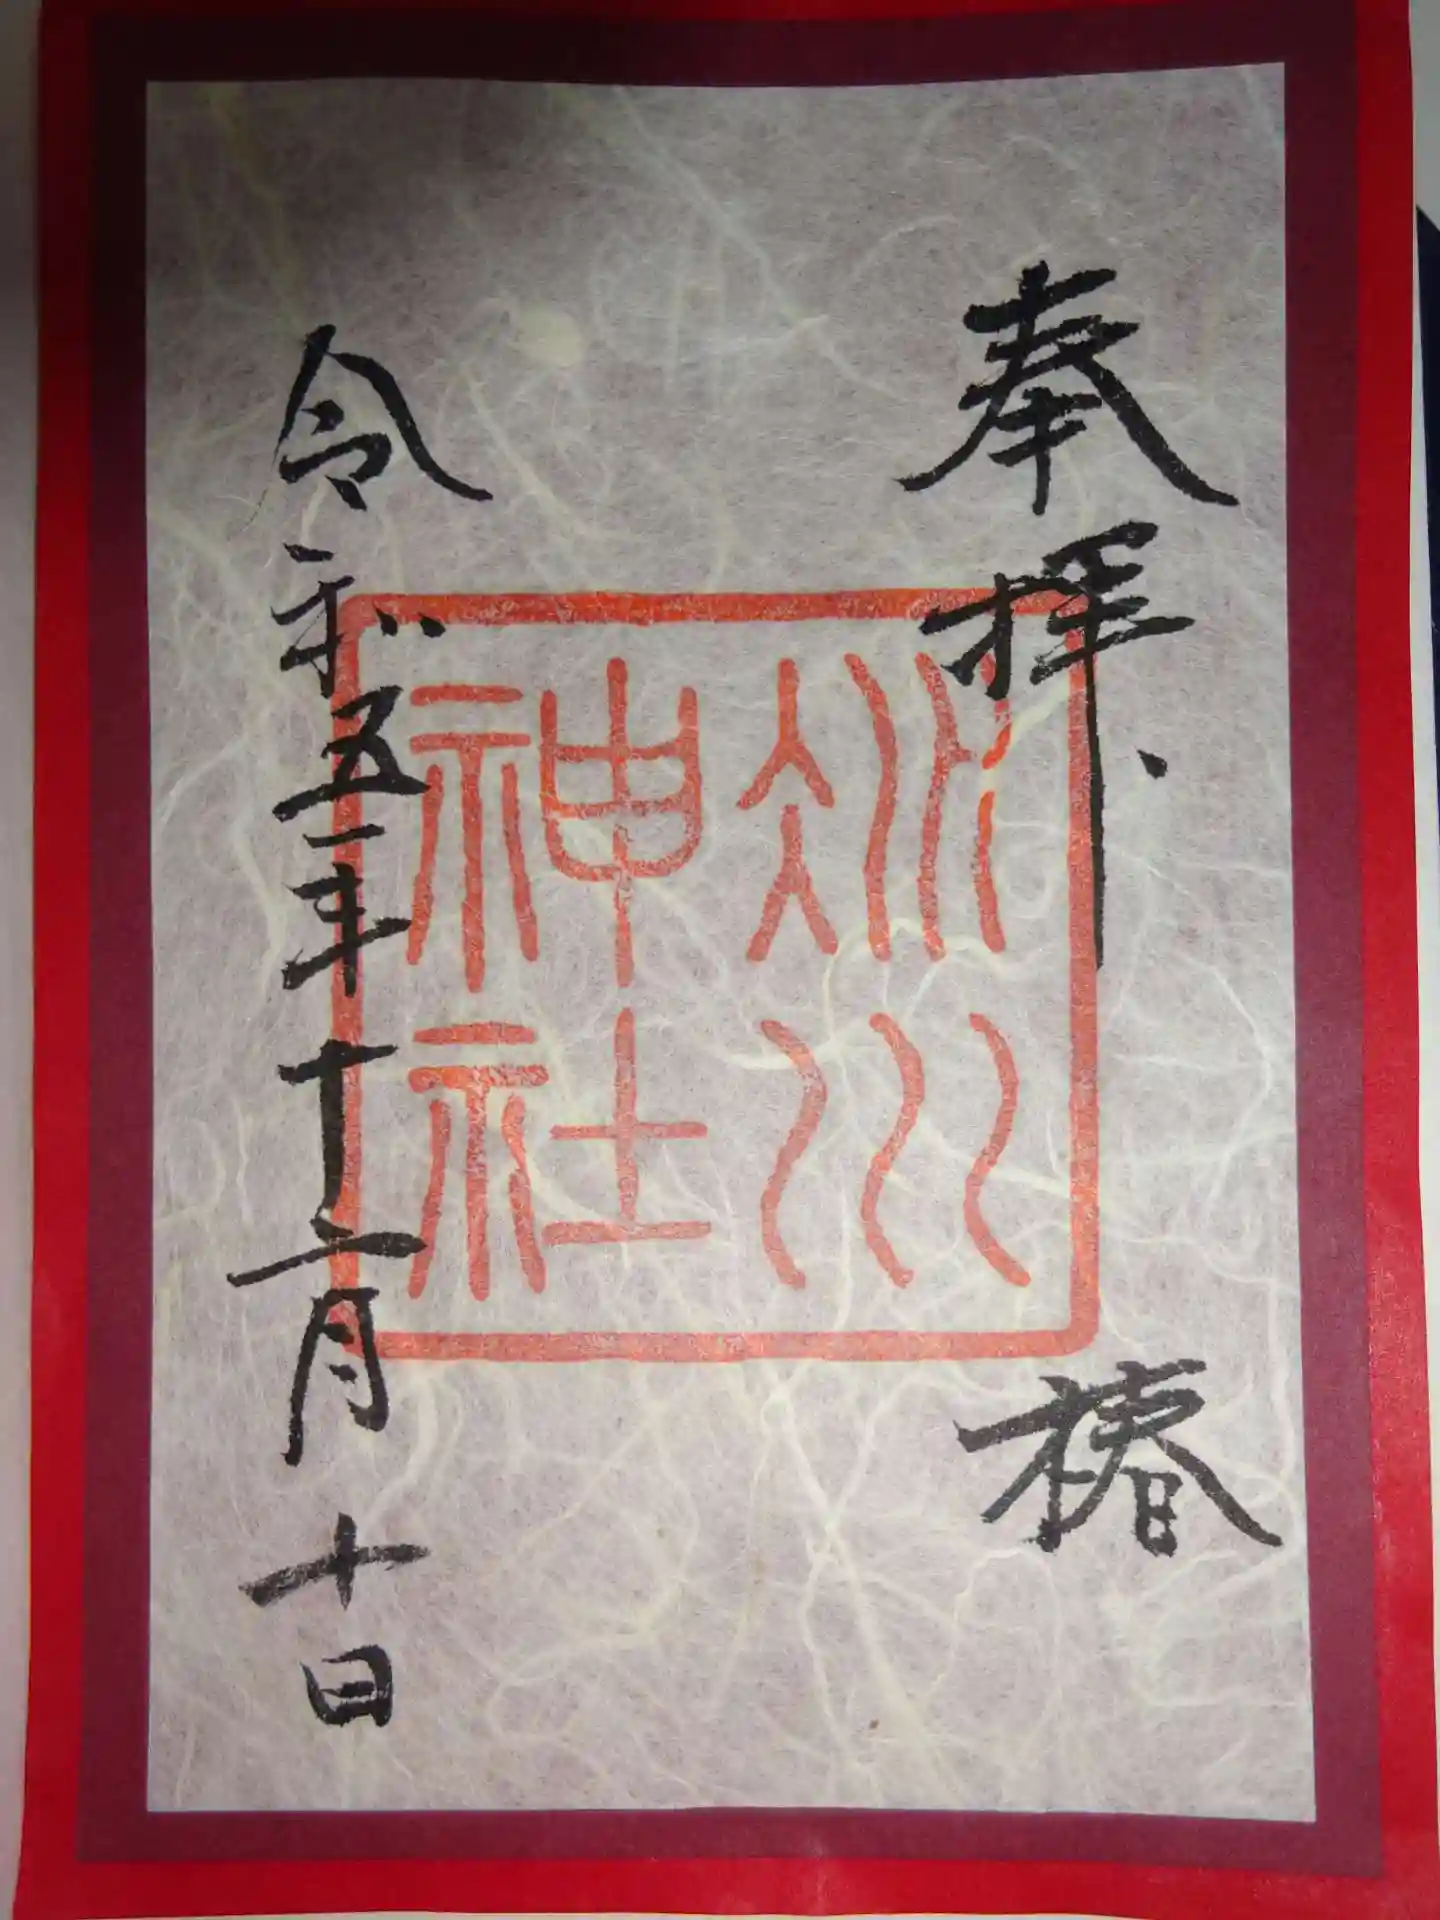 奉拝 椿
冰川
神社
令和五年十二月十日